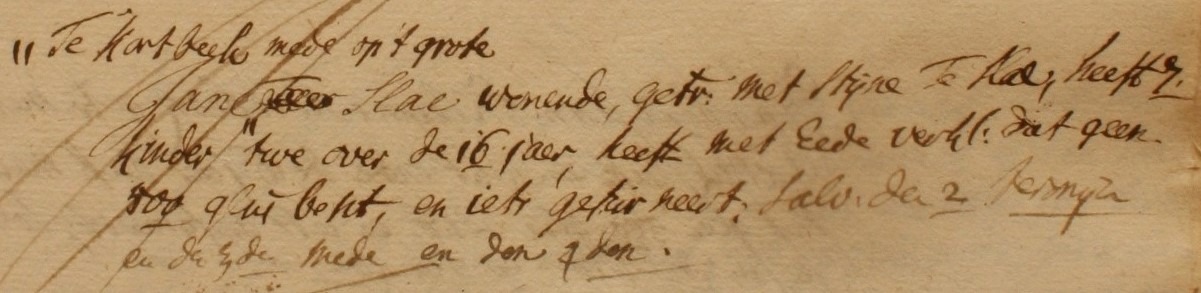 " Te Hortbeek mede op't grote
Jan Slae wonende, getr: met Stijne Te Slae, heeft 7.
kinder" twe over de 16 jaer, heeft met Eede verkl: dat geen
700 glns besit, en iets gefurneert; Salv: den 2 termijn
en de 3den mede en den 4den.